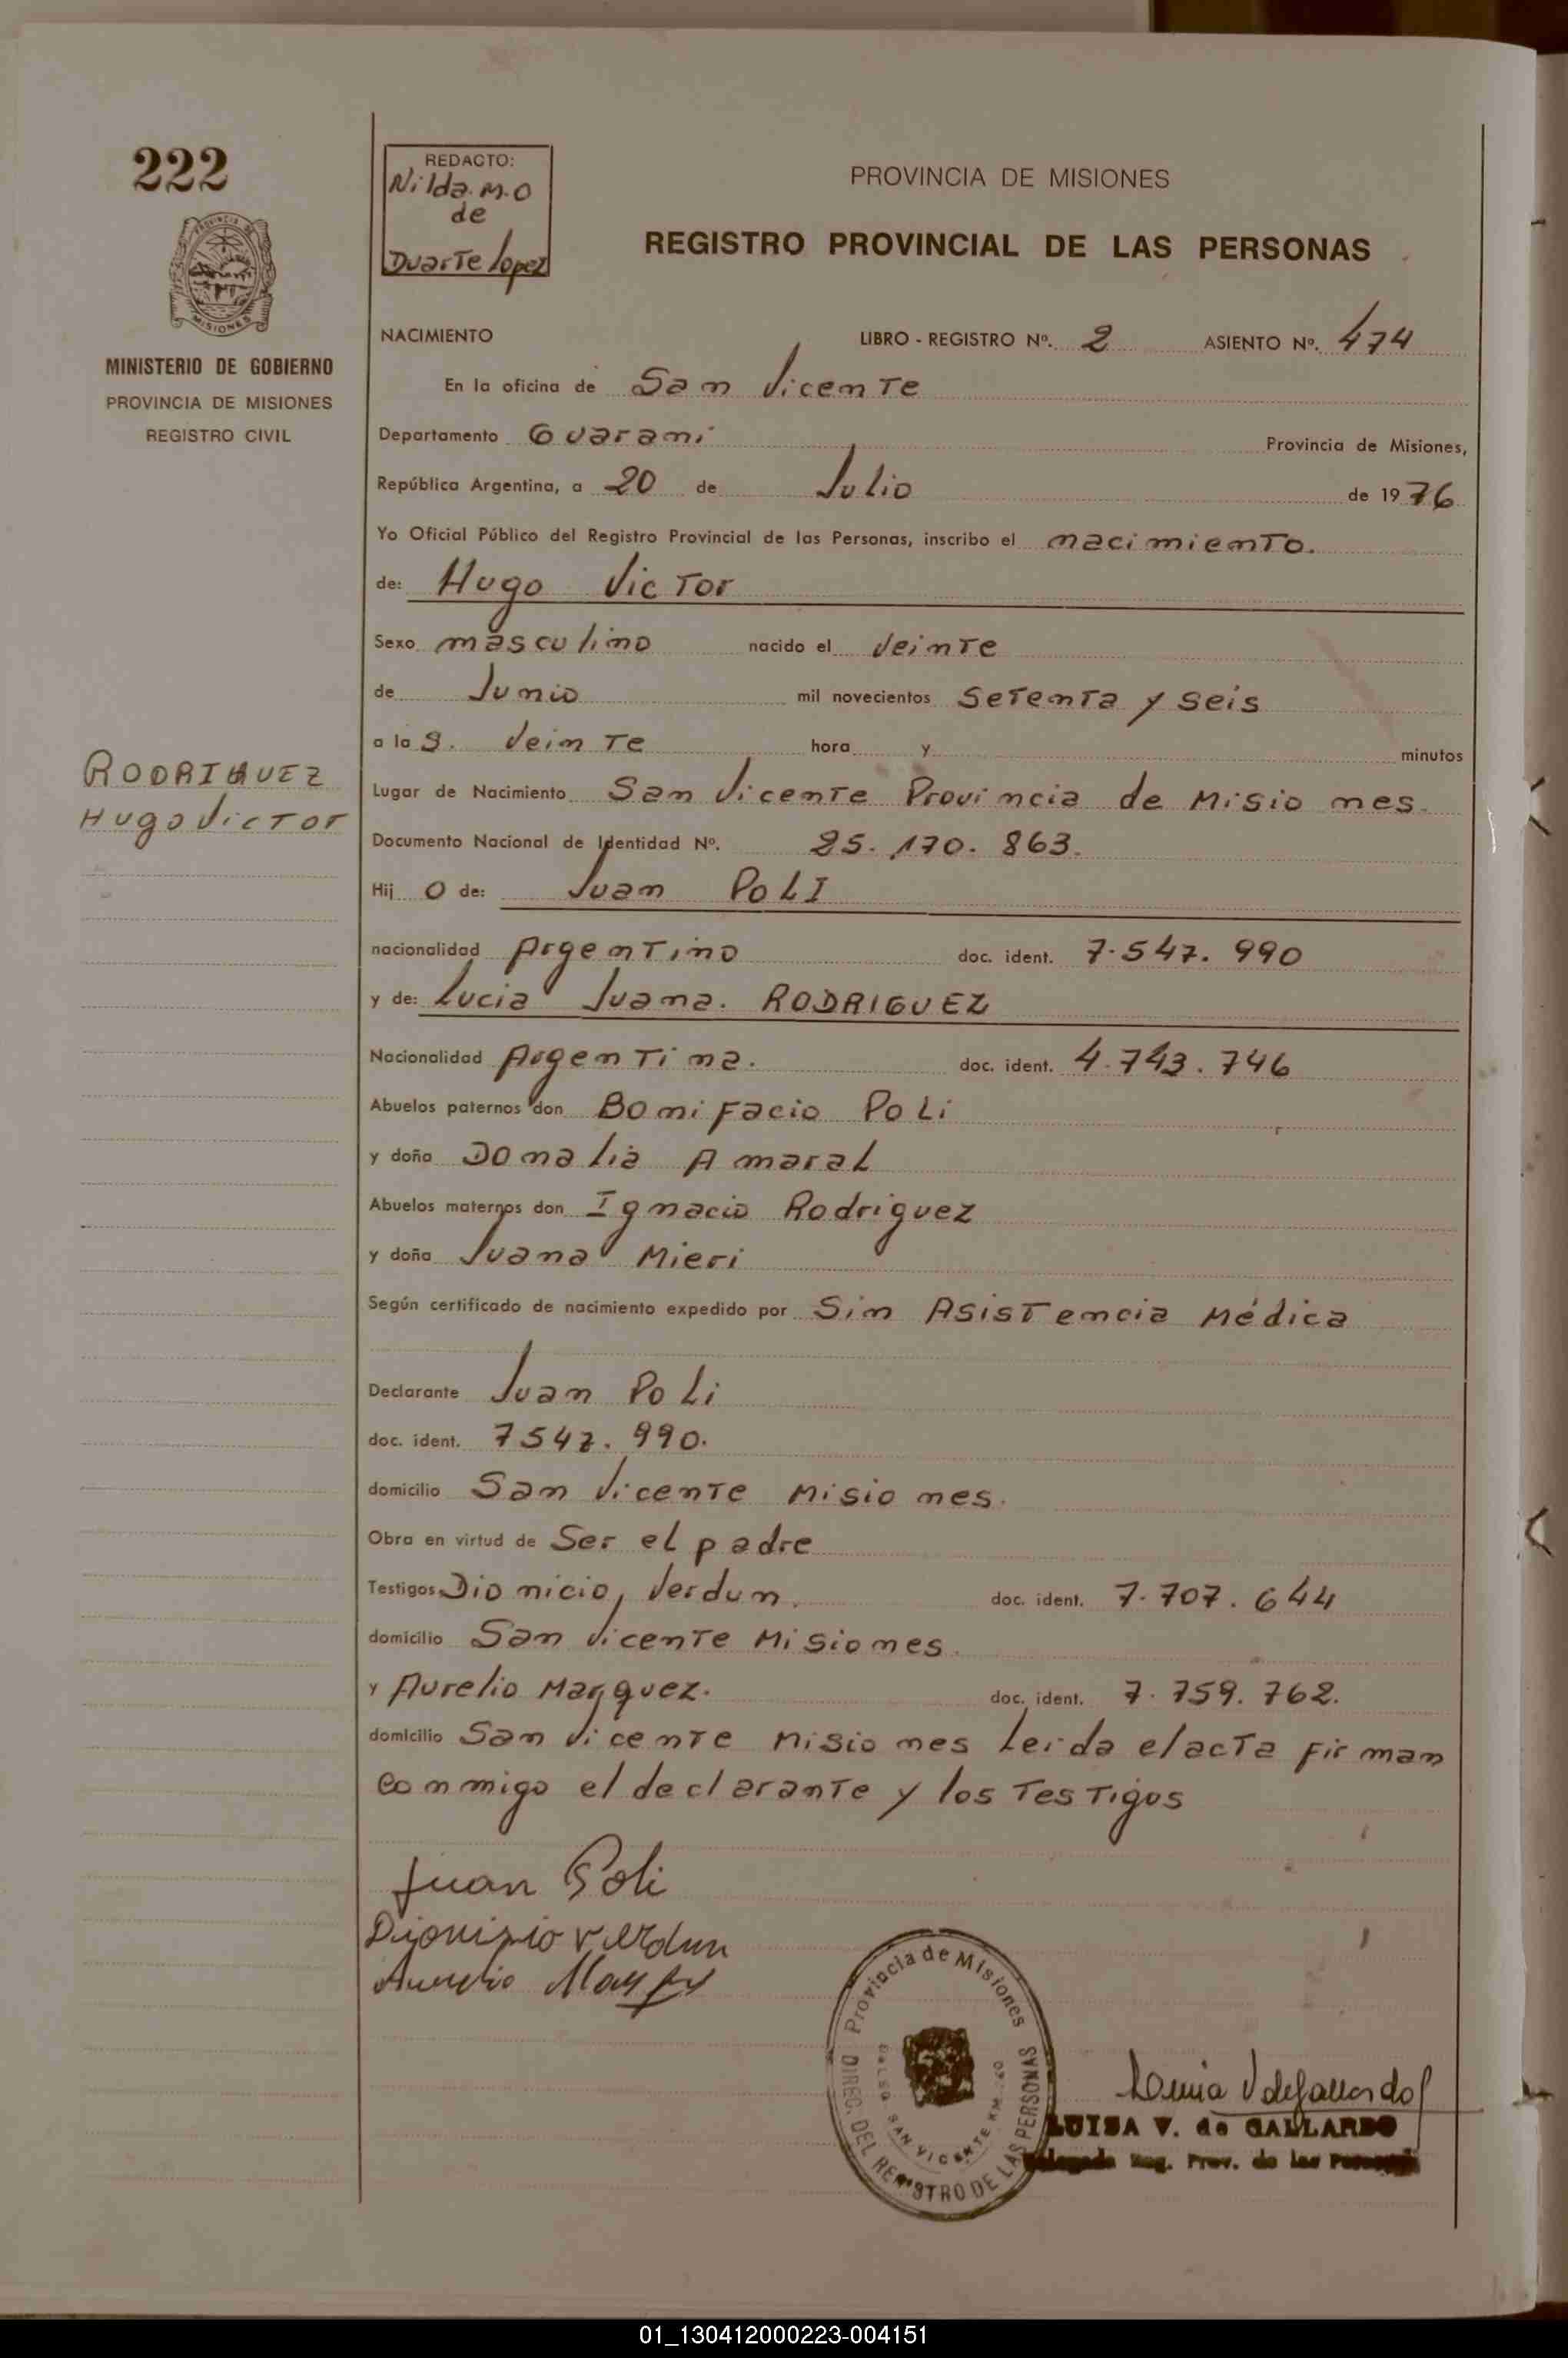 222
PROVINCIA DE
MISIONES
MINISTERIO DE GOBIERNO
PROVINCIA DE MISIONES
REGISTRO CIVIL
RODRIGUEZ
Hugo Victor
REDACTO:
Nilda. M. O
de
Duarte Lopez
PROVINCIA DE MISIONES
REGISTRO PROVINCIAL DE LAS PERSONAS
NACIMIENTO LIBRO - REGISTRO Nº. 2 ASIENTO Nº. 474
En la oficina de San Vicente
Departamento Guarani Provincia de Misiones,
República Argentina, a 20 de Julio de 1976
Yo Oficial Público del Registro Provincial de las Personas, inscribo el nacimiento.
de: Hugo Victor
Sexo masculino nacido el veinte
de Junio mil novecientos setenta y seis
a las. veinte hora y minutos
Lugar de Nacimiento San Vicente Provincia de Misiones.
Documento Nacional de Identidad Nº. 25. 170. 863.
Hij o de: Juan POLI
nacionalidad Argentino doc. ident. 7.547. 990
y de: Lucia Juana. RODRIGUEZ
Nacionalidad Argentina. doc. ident. 4.743. 746
Abuelos paternos don Bonifacio Poli
y doña Donalia Amaral
Abuelos maternos don Ignacio Rodriguez
y doña Juana Mieri
Según certificado de nacimiento expedido por Sin Asistencia Médica
Declarante Juan Poli
doc. ident. 7547. 990.
domicilio San Vicente Misiones.
Obra en virtud de Ser el padre
Testigos Dionicio, Verdun. doc. ident. 7. 707. 644
domicilio San Vicente Misiones.
y Aurelio Marquez. doc. ident. 7. 759. 762.
domicilio San Vicente Misiones Leida el acta firman
conmigo el declarante y los Testigos
Juan Poli
Dionisio Verdun
Aurelio
Provincia de Misiones
DIREC. DEL REGISTRO DE LAS PERSONAS
SAN VICENTE KM.
Luisa V de Gallardo
LUISA V. de GALLARDO
Delegada Reg. Prov. de las Personas
01_130412000223-004151